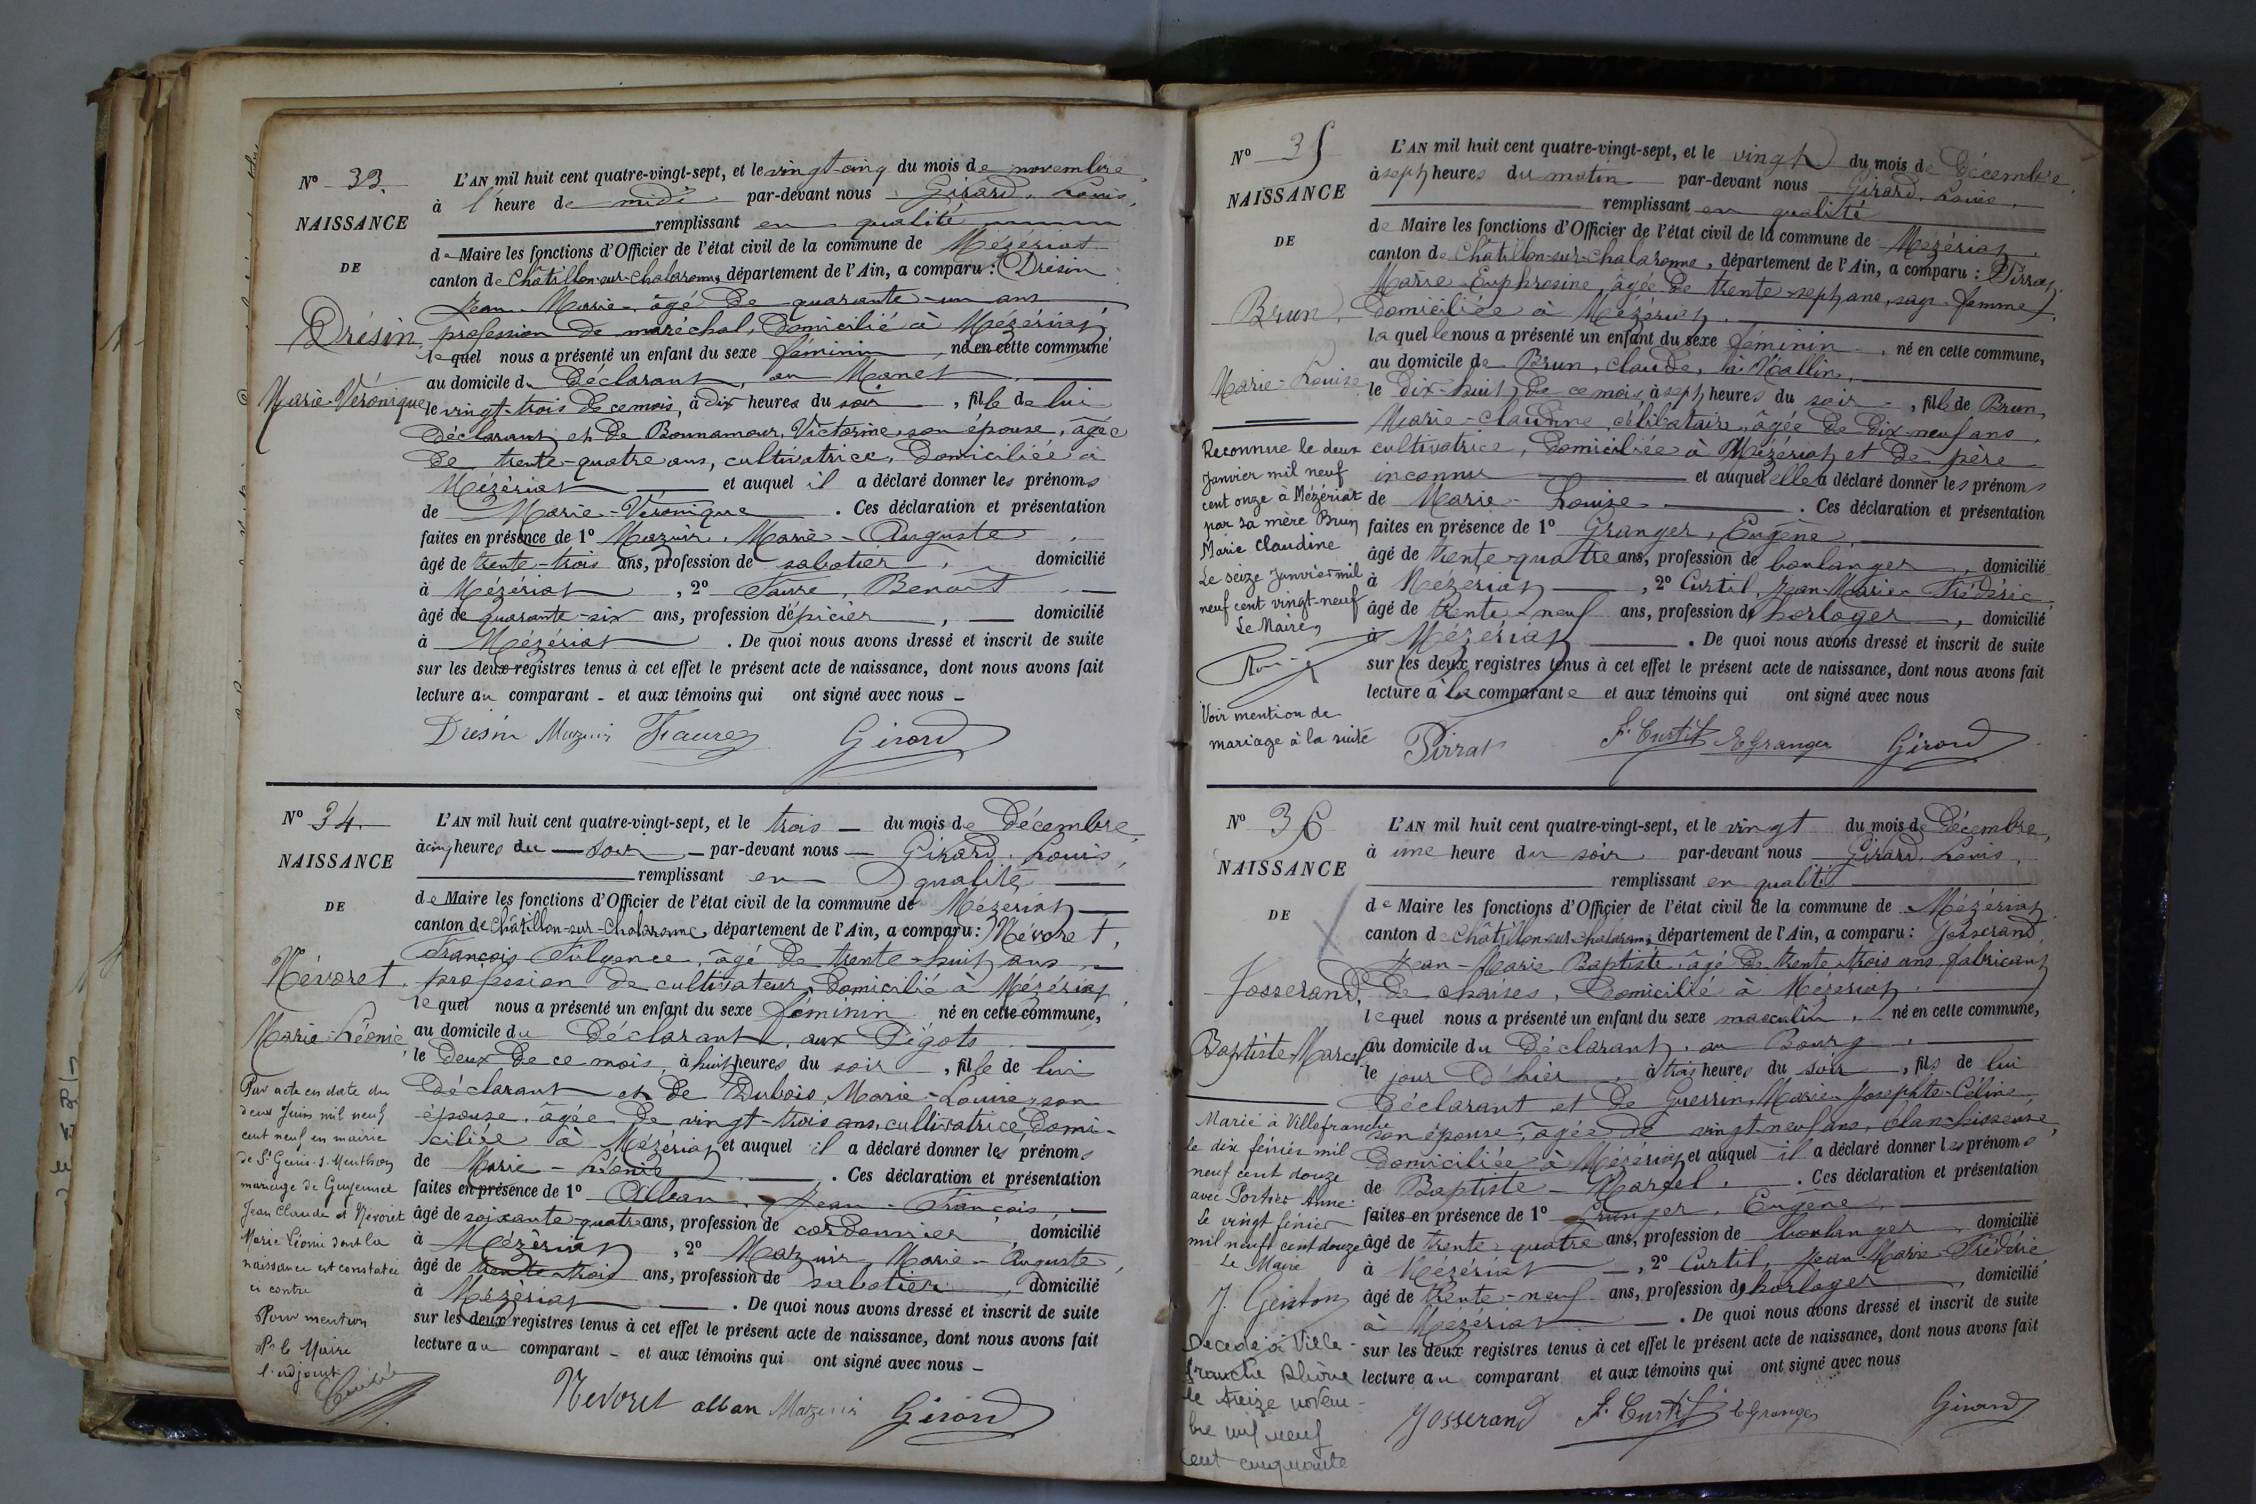 Nº 33.
NAISSANCE
DE
Drésin
Marie-Véronique
L'AN mil huit cent quatre-vingt-sept, et le vingt-cinq du mois de novembre,
à l'heure de midi par-devant nous Girard, Louis,
remplissant en qualité
de Maire les fonctions d'Officier de l'état civil de la commune de Mézériat
canton de Châtillon-sur-Chalaronne, département de l'Ain, a comparu : Drésin
Jean-Marie, âgé de quarante-un ans
profession de maréchal, domicilié à Mézériat,
lequel nous a présenté un enfant du sexe féminin, né en cette commune
au domicile du déclarant, au Manet,
le vingt-trois de ce mois, à dix heures du soir, fille de lui
déclarant et de Bonnamour, Victorine, son épouse, âgée
de trente-quatre ans, cultivatrice, domiciliée à
Mézériat et auquel il a déclaré donner les prénoms
de Marie-Véronique. Ces déclaration et présentation
faites en présence de 1º Mazuir, Marie-Auguste,
âgé de trente-trois ans, profession de sabotier, domicilié
à Mézériat, 2º Faure, Benoit
âgé de quarante-six ans, profession d'épicier, domicilié
à Mézériat. De quoi nous avons dressé et inscrit de suite
sur les deux registres tenus à cet effet le présent acte de naissance, dont nous avons fait
lecture au comparant - et aux témoins qui ont signé avec nous -
Drésin Mazuir Faure Girard
Nº 34.
NAISSANCE
DE
Névoret
Marie-Léonie
Par acte en date du
deux Juin mil neuf
cent neuf en mairie
de St Genis-s-Menthon
mariage de Guyennet
Jean Claude et Névoret
Marie Léonie dont la
naissance est constatée
ci contre
Pour mention
Pr le Maire
l'adjoint
L'AN mil huit cent quatre-vingt-sept, et le trois du mois de Décembre,
à cinq heures du soir par-devant nous Girard, Louis,
remplissant en qualité
de Maire les fonctions d'Officier de l'état civil de la commune de Mézériat
canton de Châtillon-sur-Chalaronne, département de l'Ain, a comparu : Névoret,
François-Fulgence, âgé de trente-huit ans,
profession de cultivateur, domicilié à Mézériat,
lequel nous a présenté un enfant du sexe féminin né en cette commune,
au domicile du déclarant, aux Pégots
le deux de ce mois, à huit heures du soir, fille de lui
déclarant et de Dubois, Marie-Louise, son
épouse, âgée de vingt-trois ans, cultivatrice, domi-
ciliée à Mézériat et auquel il a déclaré donner les prénoms
de Marie-Léonie. Ces déclaration et présentation
faites en présence de 1º Alban, Jean-François,
âgé de soixante-quatre ans, profession de cordonnier, domicilié
à Mézériat, 2º Mazuir, Marie-Auguste,
âgé de trente-trois ans, profession de sabotier, domicilié
à Mézériat. De quoi nous avons dressé et inscrit de suite
sur les deux registres tenus à cet effet le présent acte de naissance, dont nous avons fait
lecture au comparant - et aux témoins qui ont signé avec nous -
Névoret alban Mazuir Girard
Nº 35
NAISSANCE
DE
Brun,
Marie-Louise
Reconnue le deux
Janvier mil neuf
cent onze à Mézériat
par sa mère Brun
Marie Claudine
Le seize Janvier mil
neuf cent vingt-neuf
Le Maire,
Voir mention de
mariage à la suite
L'AN mil huit cent quatre-vingt-sept, et le vingt du mois de Décembre,
à sept heures du matin par-devant nous Girard, Louis,
remplissant en qualité
de Maire les fonctions d'Officier de l'état civil de la commune de Mézériat,
canton de Châtillon-sur-Chalaronne, département de l'Ain, a comparu : Pirrat,
Marie-Euphrosine, âgée de trente-sept ans, sage-femme,
domiciliée à Mézériat,
laquelle nous a présenté un enfant du sexe féminin, né en cette commune,
au domicile de Brun, Claude, à Vallin,
le dix-huit de ce mois, à sept heures du soir, fille de Brun,
Marie-Claudine, célibataire, âgée de dix-neuf ans,
cultivatrice, domiciliée à Mézériat et de père
inconnu et auquel elle a déclaré donner les prénoms
de Marie-Louise. Ces déclaration et présentation
faites en présence de 1º Granger, Eugène,
âgé de trente-quatre ans, profession de boulanger, domicilié
à Mézériat, 2º Curtil, Jean-Marie-Frédéric,
âgé de trente-neuf ans, profession d'horloger, domicilié
à Mézériat. De quoi nous avons dressé et inscrit de suite
sur les deux registres tenus à cet effet le présent acte de naissance, dont nous avons fait
lecture à la comparante et aux témoins qui ont signé avec nous
Pirrat F. Curtil E Granger Girard
Nº 36
NAISSANCE
DE
Josserand,
Baptiste-Marcel
Marié à Villefranche
le dix février mil
neuf cent douze
avec Portier Anne.
Le vingt février
mil neuf cent douze
Le Maire
Décédé à Ville-
franche Rhône
le treize novem-
bre mil neuf
cent cinquante
L'AN mil huit cent quatre-vingt-sept, et le vingt du mois de Décembre,
à une heure du soir par-devant nous Girard, Louis,
remplissant en qualité
de Maire les fonctions d'Officier de l'état civil de la commune de Mézériat
canton de Châtillon-sur-Chalaronne, département de l'Ain, a comparu : Josserand,
Jean-Marie-Baptiste, âgé de trente-trois ans, fabricant
de chaises, domicilié à Mézériat,
lequel nous a présenté un enfant du sexe masculin, né en cette commune,
au domicile du déclarant, au Bourg,
le jour d'hier, à trois heures du soir, fils de lui
déclarant et de Guerrin, Marie-Josephte-Céline,
son épouse, âgée de vingt-neuf ans, blanchisseuse,
domiciliée à Mézériat et auquel il a déclaré donner les prénoms
de Baptiste-Marcel. Ces déclaration et présentation
faites en présence de 1º Granger, Eugène,
âgé de trente-quatre ans, profession de boulanger, domicilié
à Mézériat, 2º Curtil, Jean-Marie-Frédéric,
âgé de trente-neuf ans, profession d'horloger, domicilié
à Mézériat. De quoi nous avons dressé et inscrit de suite
sur les deux registres tenus à cet effet le présent acte de naissance, dont nous avons fait
lecture au comparant et aux témoins qui ont signé avec nous
Josserand F. Curtil E Granger Girard